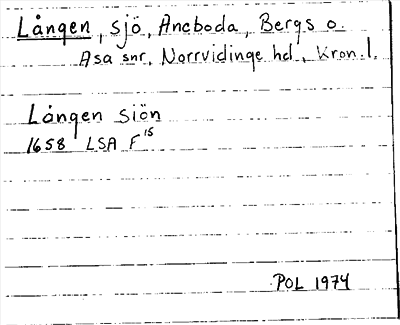 Lången, sjö, Aneboda, Bergs o.
Asa snr, Norrvidinge hd, Kron.l.
Lången siön
1658 LSA F 15
POL 1974